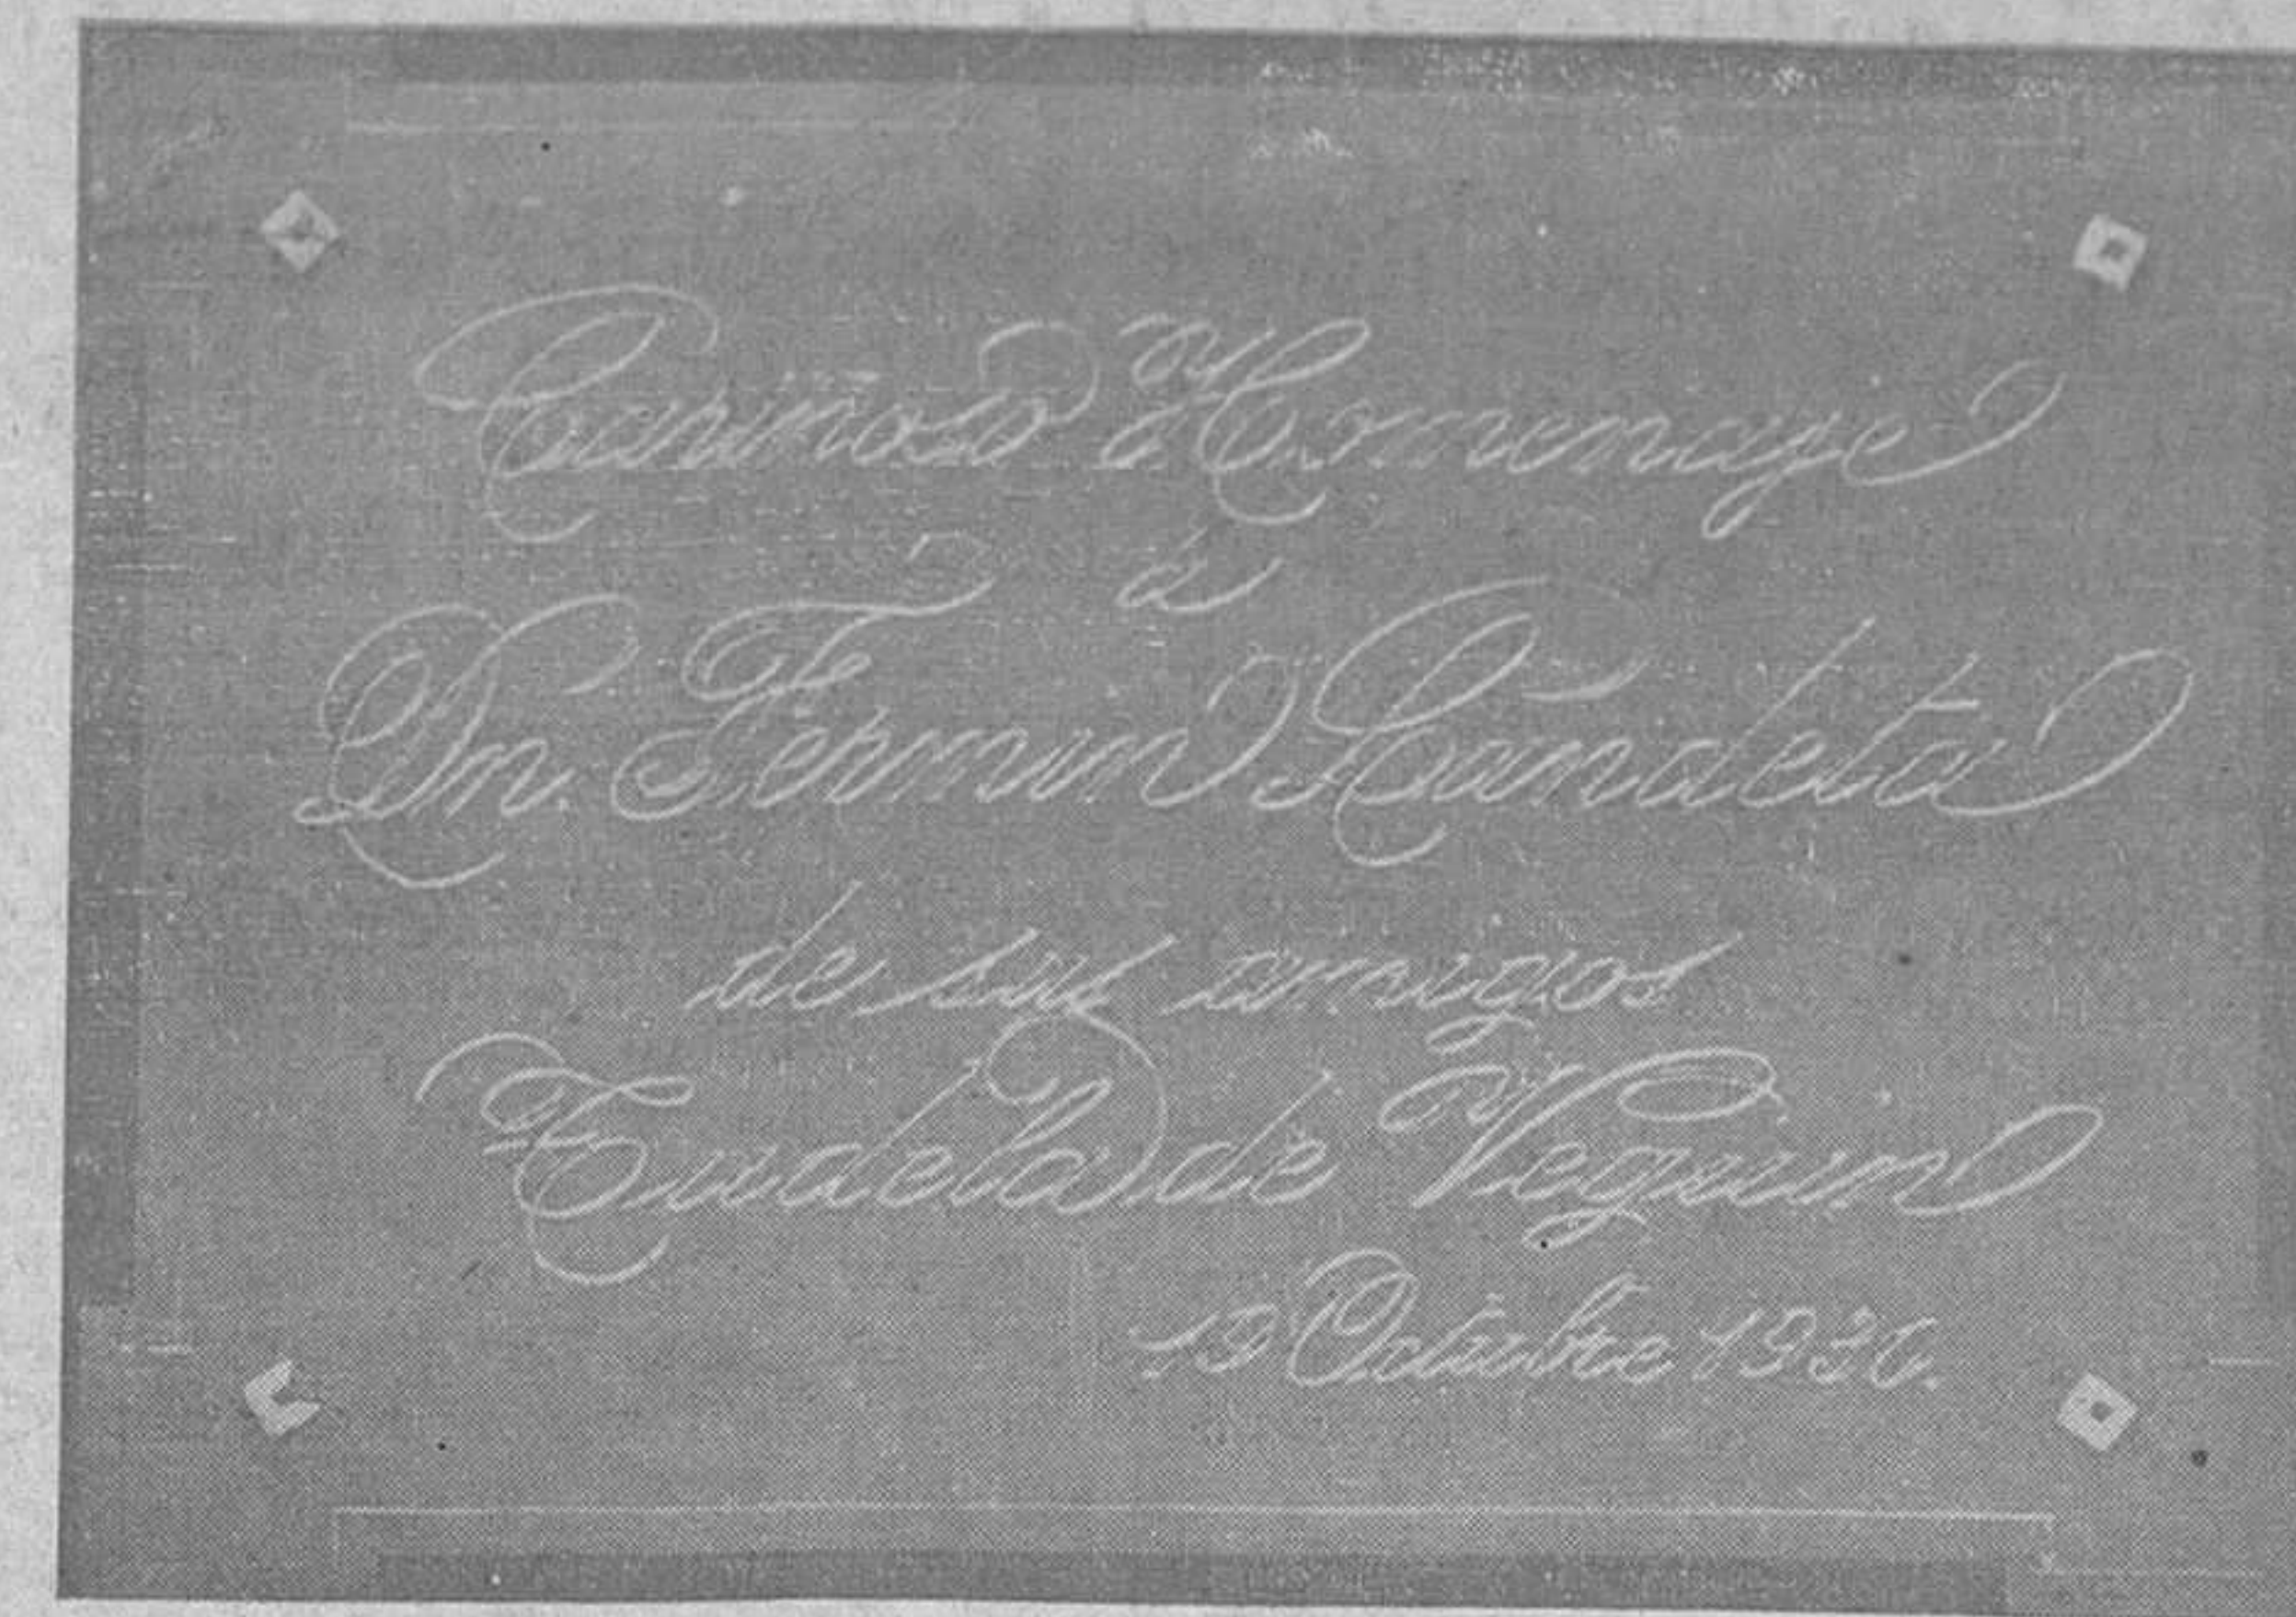 Cariñoso Homenaje
á
Dn. Fermin Landeta
de sus amigos
Tudela de Veguin
19 Octubre 1930.